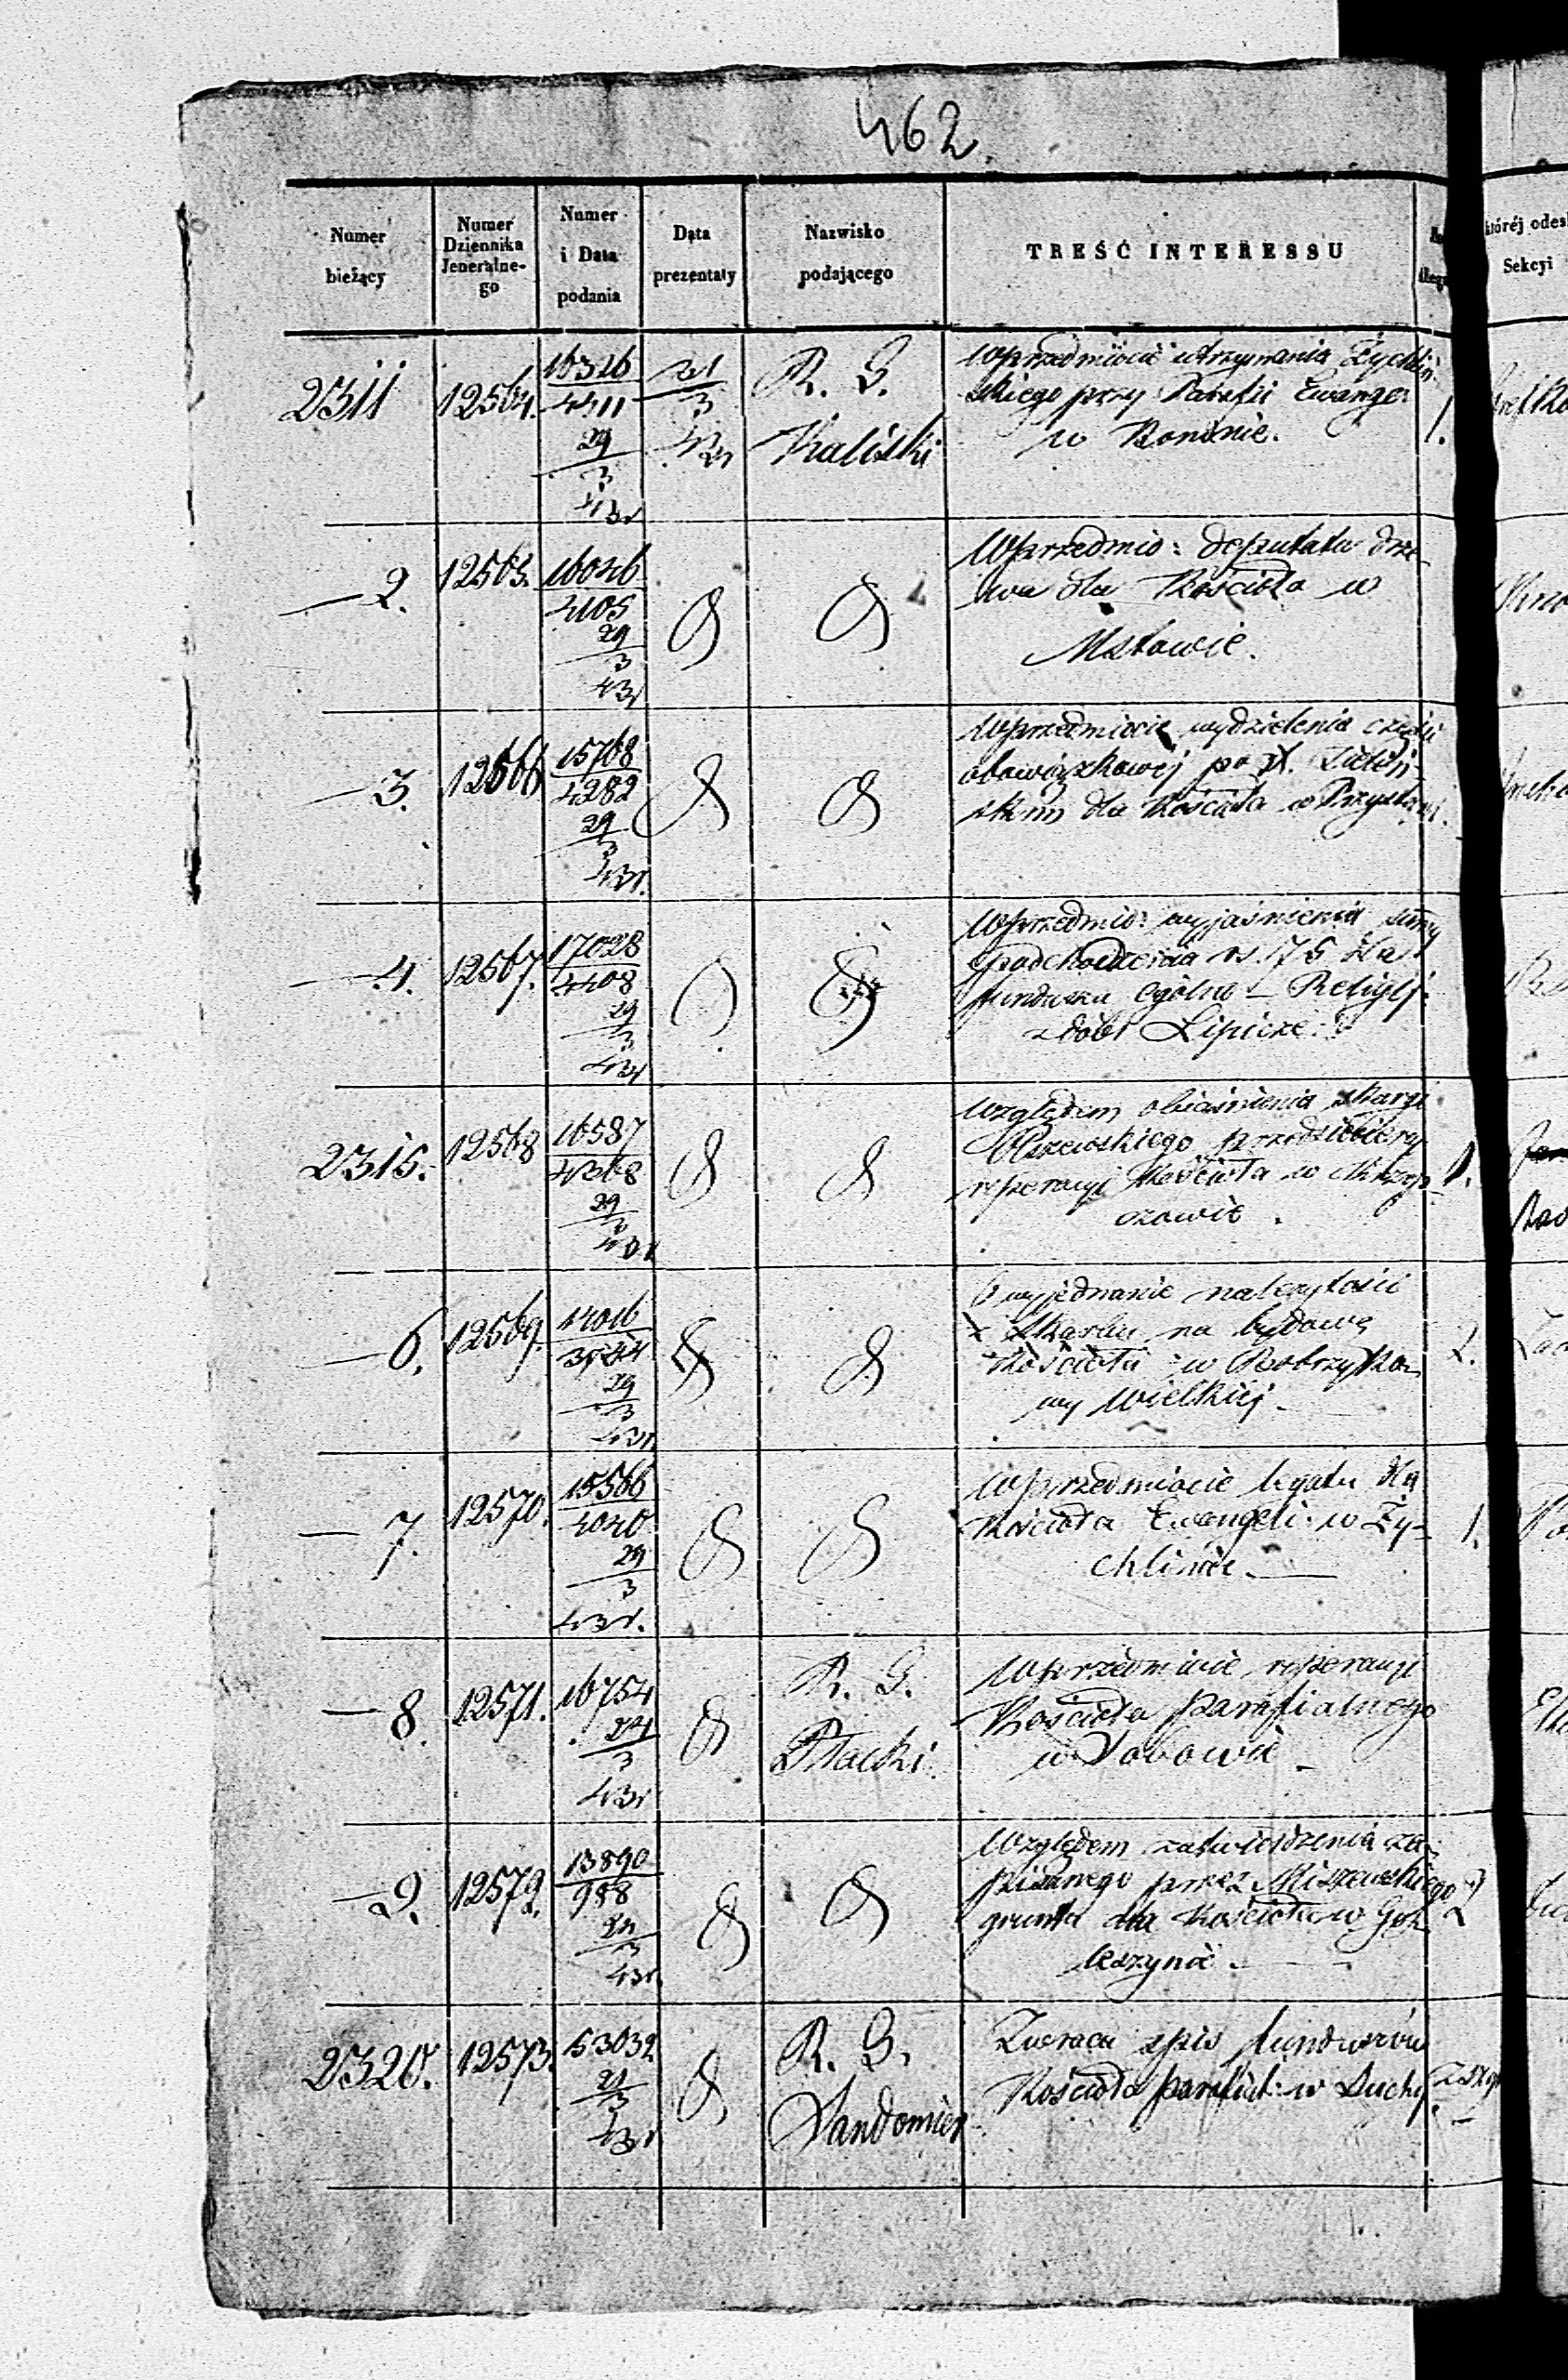 462.
Numer
bieżący
Numer
Dziennika
Jeneralne-
go
Numer
i Data
podania
Data
prezentaty
Nazwisko
podającego
TREŚĆ INTERESSU
któréj odes
Sekcyi
2311
12564.
16326
4411
29
3
431
31
3
R. G.
Kaliski
W przedmiocie utrzymania Żychliń
skiego przy Parafii Ewange:
w Koninie.
1.
— 2.
12565.
16046
4105
29
3
431
W przedmio: deputatu drze-
wa dla Kościoła w
Mstowie.
— 3.
12566
15768
4282
29
3
431.
W przedmiocie wydzielenia części
obowiązkowej po X. Zieliń-
skim dla Kościoła w Przystajni.
— 4.
12567.
17028
4408
29
3
431
W przedmio: wyjaśnienia summy
pochodzenia rs. 175 dla
funduszu Ogólno – Religij:
z dóbr Lipicze.
2315.
12568
16587
4368
29
3
431
Względem objaśnienia skargi
przedsiębiercy
reperacyi Kościoła w Krzep-
czowie.
1.
— 6.
12569.
14016
3744
29
3
431
O wyjednanie należytości
z Skarbu na budowę
Kościoła w Dobrzyko-
wy Wielkiej.
2.
— 7.
12570.
15566
4040
29
3
431.
W przedmiocie legatu dla
Kościoła Ewangeli: w Ży-
chlinie. —
1.
— 8.
12571.
16754
24
3
431
R. G.
Płocki.
W przedmiocie reperacyi
Kościoła parafialnego
w
— 9.
12572.
13890
988
24
3
431.
Względem zatwierdzenia za-
pisanego przez Miszewskiego
gruntu dla Kościoła w Gok
leszynie. —
2
2320.
12573.
53032
21
3
431
R. G.
Sandomier
Zwraca spis funduszów
Kościoła parafial: w Suchy